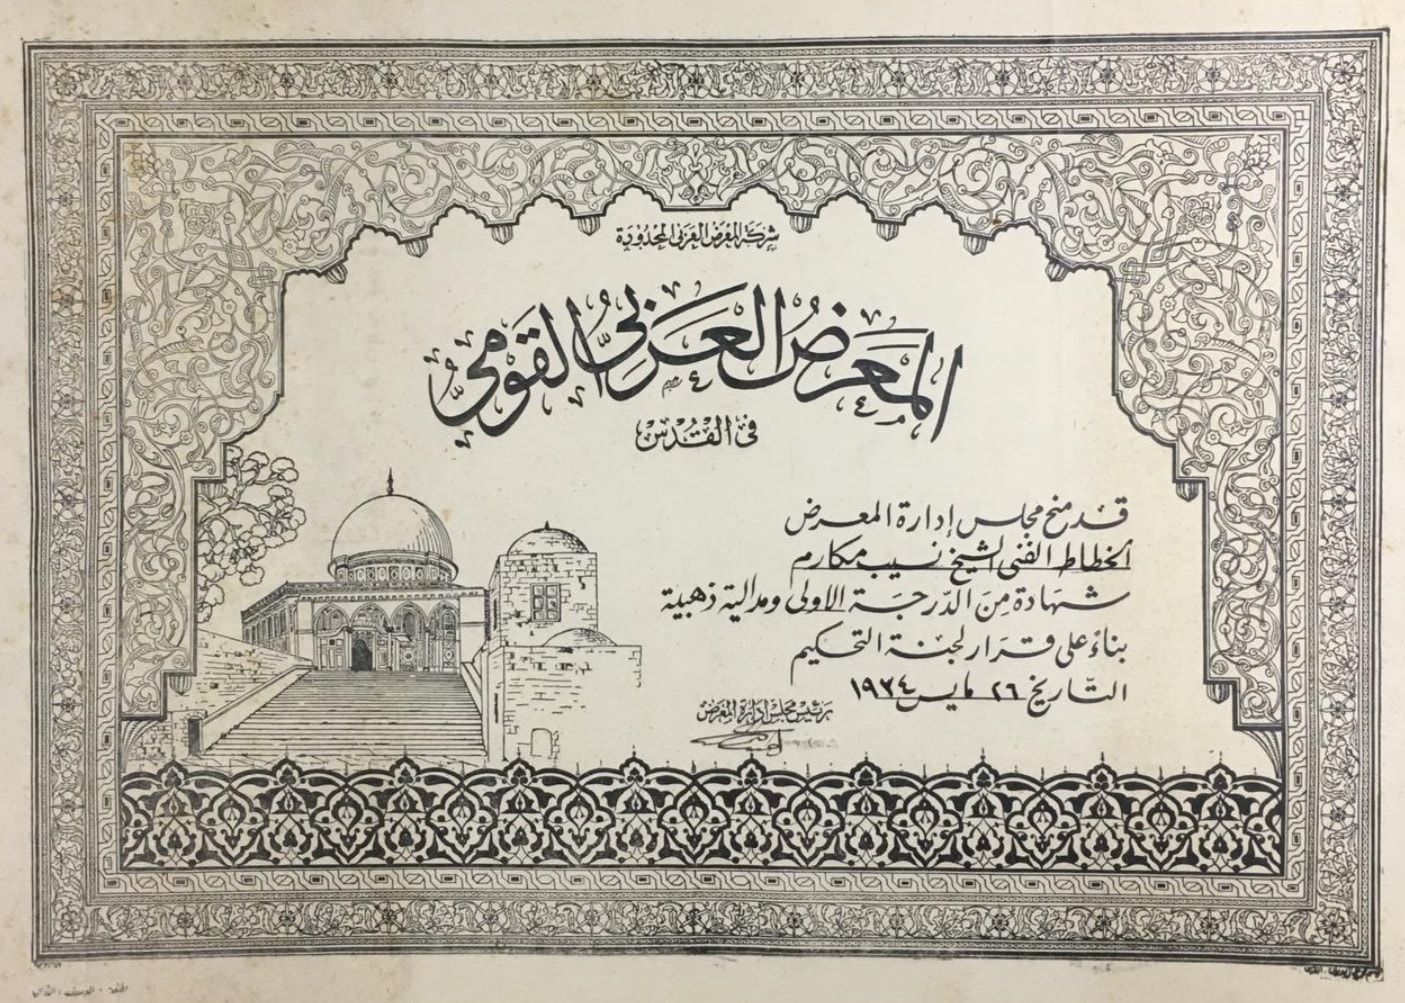 شركة المعرض العربي المحدودة
المعرض العربي القومي
في القدس
قد منح مجلس إدارة المعرض
الخطاط الفني الشيخ نسيب مكارم
شهادة من الدرجة الاولى ومدالية ذهبية
بناءً على قرار لجنة التحكيم
التاريخ ٢٦ مايس ١٩٣٤
رئيس مجلس ادارة المعرض